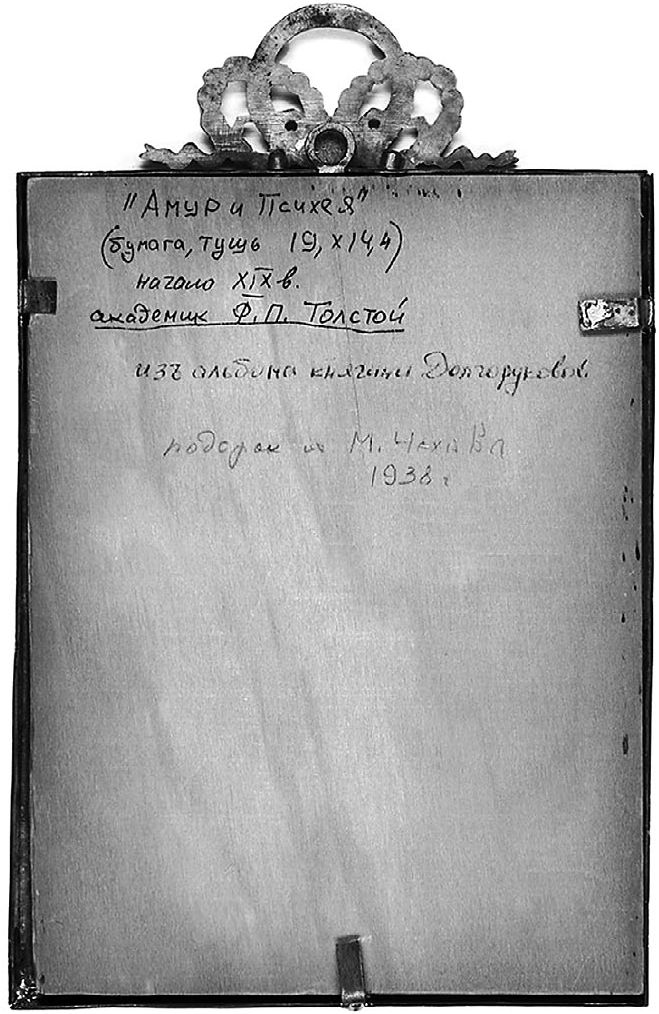 "Амур и Психея"
(бумага, тушь 19, х 14,4)
начало XIX в.
академик Ф.П. Толстой
изъ альбома княгини Долгоруковой
подарок М. Чехова
1938 г